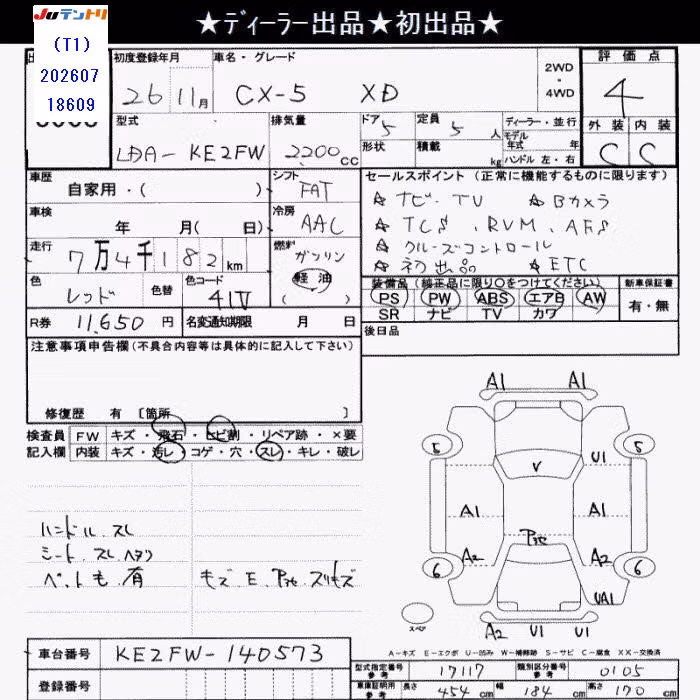 ★ディーラー出品★初出品★
JUテントリ
(T1)
202607
18609
初度登録年月 車名・グレード 2WD・4WD 評価点
26 11月 CX-5 XD 4
型式 排気量 ドア 定員 ディーラー・並行 外装 内装
LDA-KE2FW 2200cc 5 5人 モデル年式 年 C C
形状 積載 kg ハンドル 左・右
車歴 シフト セールスポイント (正常に機能するものに限ります)
自家用・( ) FAT ☆ ナビ.TV ☆ Bカメラ
車検 冷房 ☆ TCS、RVM、AFS
年 月( 日) AAC ☆ クルーズコントロール
走行 燃料 ☆ 初出品 ☆ETC
7万4千182km ガソリン
軽油
( )
色 色替 色コード 装備品 (純正品に限り○をつけてください) 新車保証書
レッド 41V PS PW ABS エアB AW 有・無
SR ナビ TV カワ
R券 11,650円 名変通知期限 月 日 後日品
注意事項申告欄 (不具合内容等は具体的に記入して下さい)
修復歴 有 [箇所 ]
検査員 FW キズ・飛石・ヒビ割・リペア跡・×要
記入欄 内装 キズ・汚レ・コゲ・穴・スレ・キレ・破レ
ハンドル.スレ
シート.スレ ヘタリ
ペットも.有 キズ E.Pte スリキズ
A1 A1
5 5
V U1
A1 A1
Pte
A2 A2
6 6
UA1
スペア
A2 U1 U1
A-キズ E-エクボ U-凹み W-補修跡 S-サビ C-腐食 XX-交換済
車台番号 KE2FW-140573
登録番号
型式指定番号 参考 17117 類別区分番号 参考 0105
車庫証明用 参考 長さ 454cm 幅 184cm 高さ 170cm